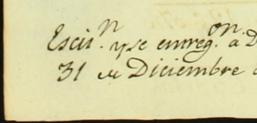 Escin. yse entreg.on a D
31 de Diciembre